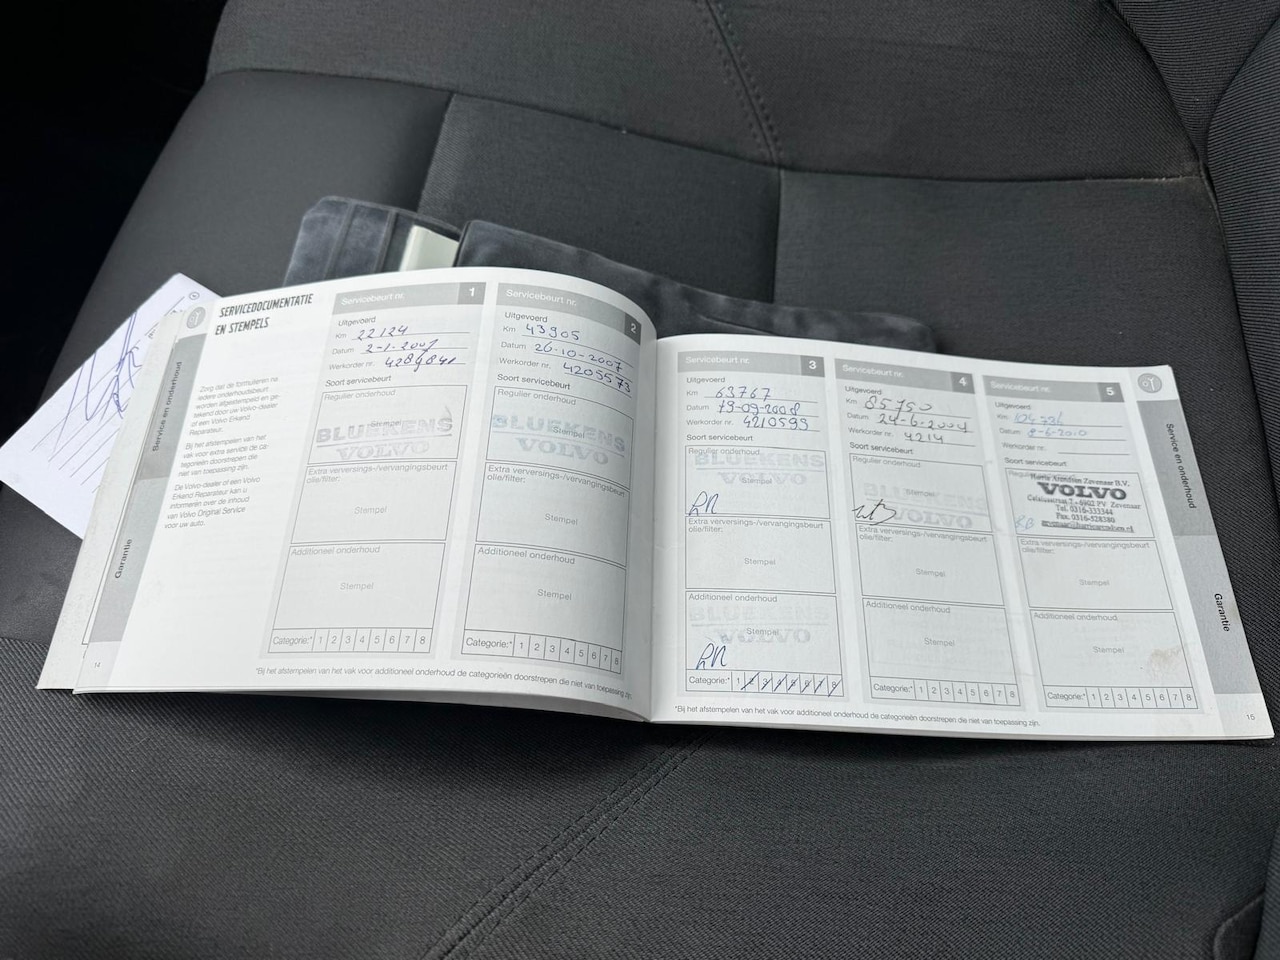 SERVICEDOCUMENTATIE
EN STEMPELS
Zorg dat de formulieren na
iedere onderhoudsbeurt
worden afgestempeld en ge-
tekend door uw Volvo-dealer
of een Volvo Erkend
Reparateur.
Bij het afstempelen van het
vak voor extra service de ca-
tegorieën doorstrepen die
niet van toepassing zijn.
De Volvo-dealer of een Volvo
Erkend Reparateur kan u
informeren over de inhoud
van Volvo Original Service
voor uw auto.
Service en onderhoud
Garantie
14
Servicebeurt nr. 1
Uitgevoerd
Km 22124
Datum 2-1-2007
Werkorder nr.
Soort servicebeurt
Regulier onderhoud
Stempel
BLUEKENS
VOLVO
Extra verversings-/vervangingsbeurt
olie/filter:
Stempel
Additioneel onderhoud
Stempel
Categorie:* 1 2 3 4 5 6 7 8
Servicebeurt nr. 2
Uitgevoerd
Km 43905
Datum 26-10-2007
Werkorder nr. 4205573
Soort servicebeurt
Regulier onderhoud
Stempel
BLUEKENS
VOLVO
Extra verversings-/vervangingsbeurt
olie/filter:
Stempel
Additioneel onderhoud
Stempel
Categorie:* 1 2 3 4 5 6 7 8
*Bij het afstempelen van het vak voor additioneel onderhoud de categorieën doorstrepen die niet van toepassing zijn.
Servicebeurt nr. 3
Uitgevoerd
Km 63767
Datum
Werkorder nr. 4210599
Soort servicebeurt
Regulier onderhoud
BLUEKENS
Stempel
VOLVO
Extra verversings-/vervangingsbeurt
olie/filter:
Stempel
Additioneel onderhoud
BLUEKENS
Stempel
VOLVO
Categorie:* 1 2 3 4 5 6 7 8
Servicebeurt nr. 4
Uitgevoerd
Km 85750
Datum
Werkorder nr. 4214
Soort servicebeurt
Regulier onderhoud
Stempel
BLUEKENS
VOLVO
Extra verversings-/vervangingsbeurt
olie/filter:
Stempel
Additioneel onderhoud
Stempel
Categorie:* 1 2 3 4 5 6 7 8
Servicebeurt nr. 5
Uitgevoerd
Km
Datum 8-6-2010
Werkorder nr.
Soort servicebeurt
Harrie Arendsen Zevenaar B.V.
VOLVO
Tel. 0316-333344
Fax. 0316-528380
Extra verversings-/vervangingsbeurt
olie/filter:
Stempel
Additioneel onderhoud
Stempel
Categorie:* 1 2 3 4 5 6 7 8
*Bij het afstempelen van het vak voor additioneel onderhoud de categorieën doorstrepen die niet van toepassing zijn.
Service en onderhoud
Garantie
15